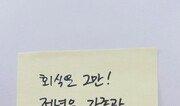 회식은 그만!
저녁은 가족과